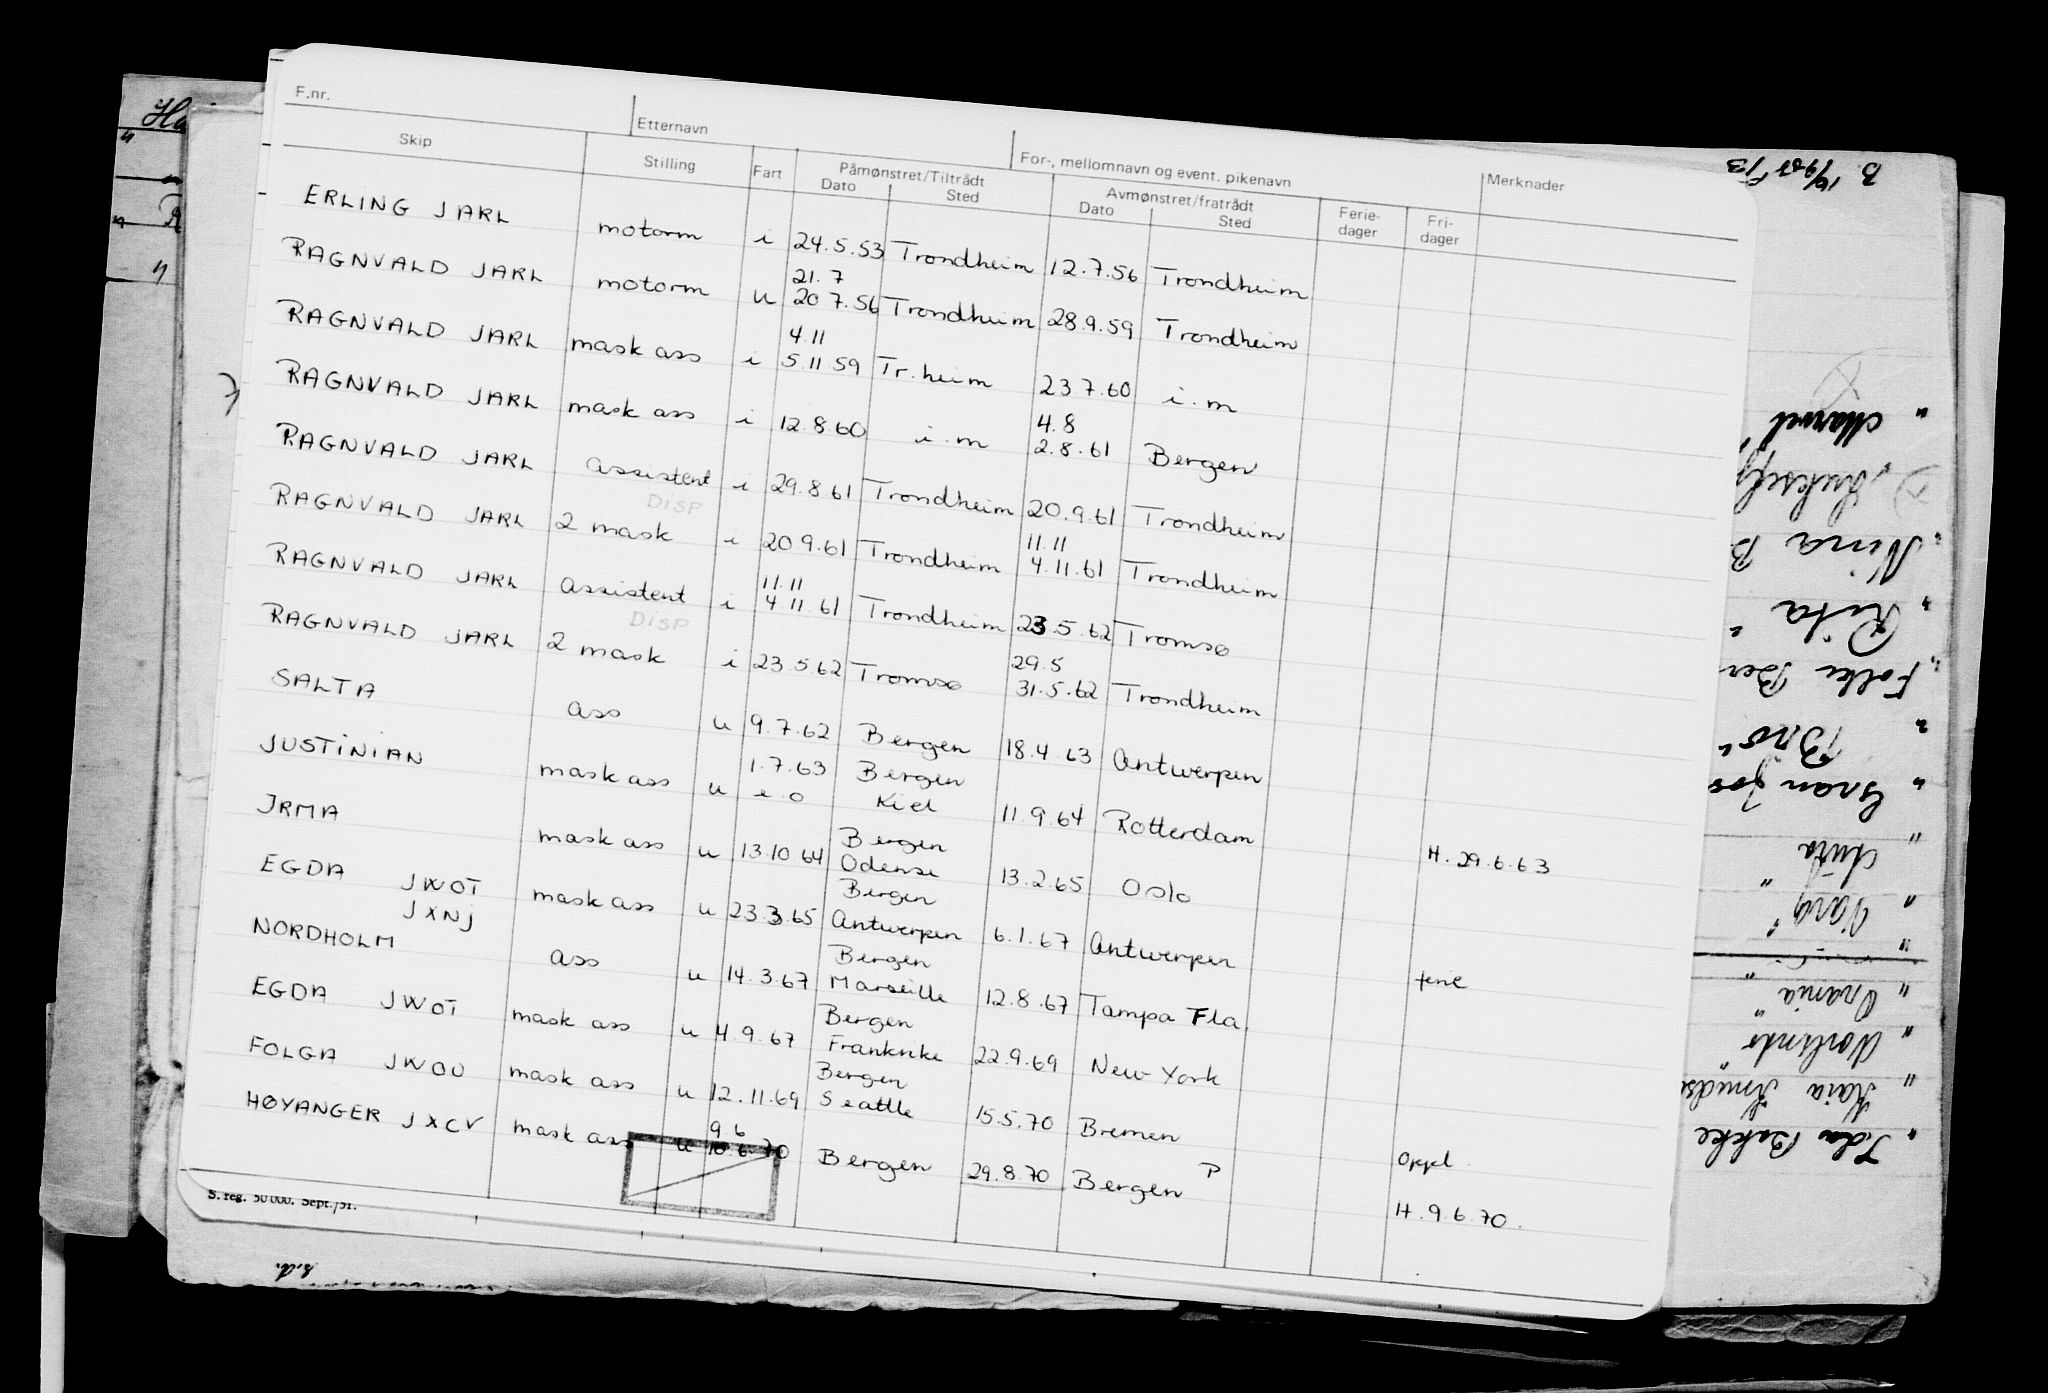 F.nr. Etternavn For-, mellomnavn og event. pikenavn
Skip Stilling Fart Påmønstret/Tiltrådt Avmønstret/fratrådt Ferie- Fri- Merknader
Dato Sted Dato Sted dager dager
ERLING JARL motorm i 24.5.53 Trondheim 12.7.56 Trondheim
21.7
RAGNVALD JARL motorm u 20 7.56 Trondheim 28.9.59 Trondheim
4.11
RAGNVALD JARL mask ass i 5.11 59 Tr.heim 23 7.60 i.m
4.8
RAGNVALD JARL mask ass i 12.8 60 i.m 2.8.61 Bergen
RAGNVALD JARL assistent i 29.8 61 Trondheim 20.9.61 Trondheim
DISP 11.11
RAGNVALD JARL 2 mask i 20.9.61 Trondheim 4.11.61 Trondheim
11.11
RAGNVALD JARL assistent i 4.11.61 Trondheim 23.5.62 Tromsø
DISP 29.5
RAGNVALD JARL 2 mask i 23.5.62 Tromsø 31.5.62 Trondheim
SALTA ass u 9.7.62 Bergen 18.4.63 Antwerpen
1.7.63 Bergen
JUSTINIAN mask ass u i.o Kiel 11.9.64 Rotterdam H. 29.6.63
Bergen
IRMA mask ass u 13.10 64 Odense 13.2.65 Oslo
Bergen
EGDA JWOT mask ass u 23.3.65 Antwerpen 6.1.67 Antwerpen ferie
JXNJ Bergen
NORDHOLM ass u 14.3.67 Marseille 12.8.67 Tampa Fla
Bergen
EGDA JWOT mask ass u 4.9.67 Frankrike 22.9.69 New York
Bergen
FOLGA JWOU mask ass u 12.11.69 Seattle 15.5.70 Bremen oppl.
9 6
HØYANGER JXCV mask ass u 10.6.70 Bergen 29.8.70 Bergen P H. 9.6.70.
S. reg. 50 000. Sept./51.
s.d.
" Marvel
" Nina B
" Rita "
" Folke Ber
" Brø"
" Gran
" Anta "
" Varg "
" Urania "
" Norlinto
" Maia Knuds
" Ida Bakke